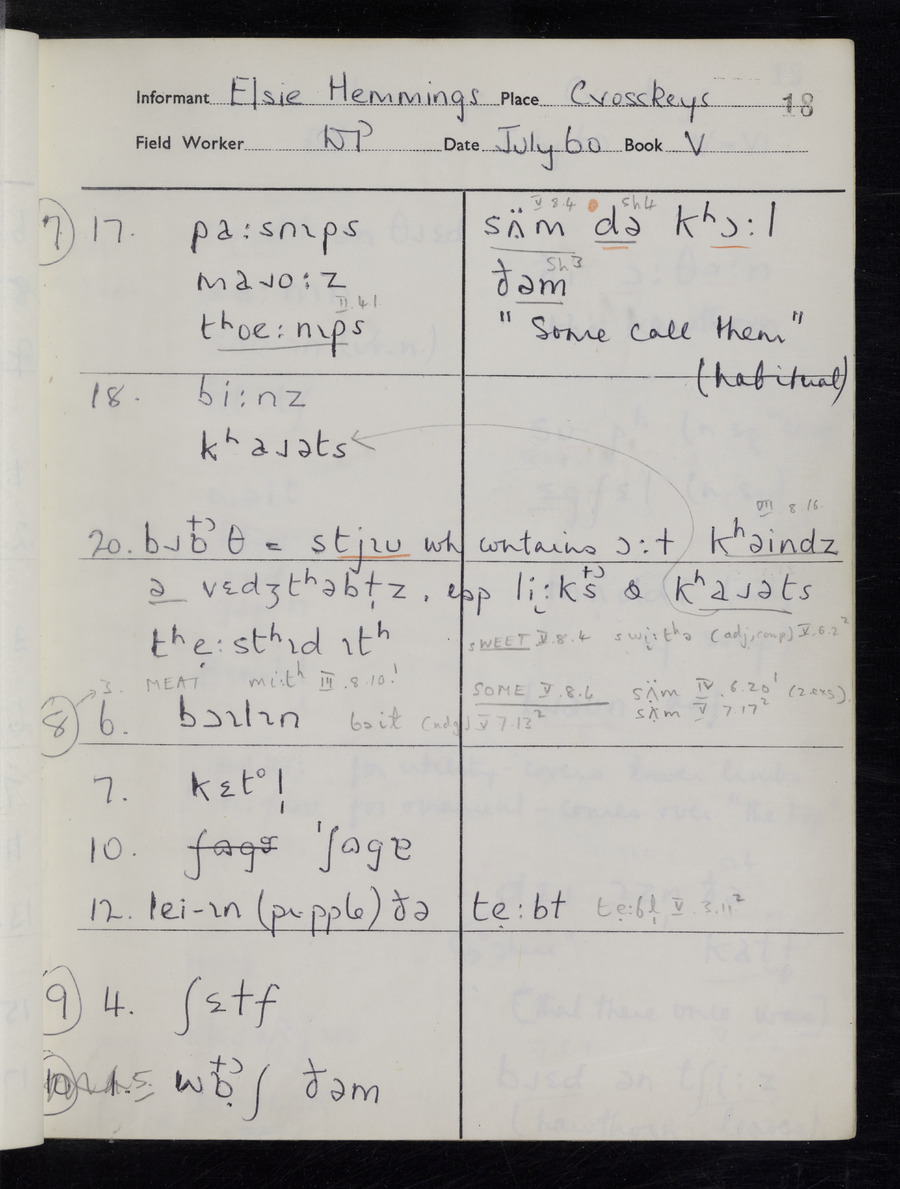 Informant Elsie Hemmings Place Crosskeys 18
Field Worker DP Date July 60 Book V
7) 17. pa:snɪps
sʌ̈m də kʰɔ:l
V 8.4 Sh4
maɹo:z
ðəm
Sh3
tʰœ:nɪps
II.4.1
" Some call them"
(habitual)
18. bi:nz
kʰaɹəts
20. bɹɒθ = stjɪu wh contains ɔ:ɫ kʰəindz
VIII 8 16
ə vɛdʒtʰəbɫz, esp li:ks & kʰaɹəts
tʰe:stʰɪd ɪtʰ
SWEET V.8.4 (adj, comp) V.6.2²
3. MEAT mi:tʰ III.8.10!
SOME V.8.4 sʌ̈m IV.6.20¹ (2 exs).
sʌ̈m V 7.17²
8 6. bɔɪlɪn V 7.13²
7. kɛtl̩
10. ʃəgə
12. lei-ɪn (people) ðə te:bɫ te:bl̩ V.3.11²
9 4. ʃɛɫf
10 1. wɒʃ ðəm